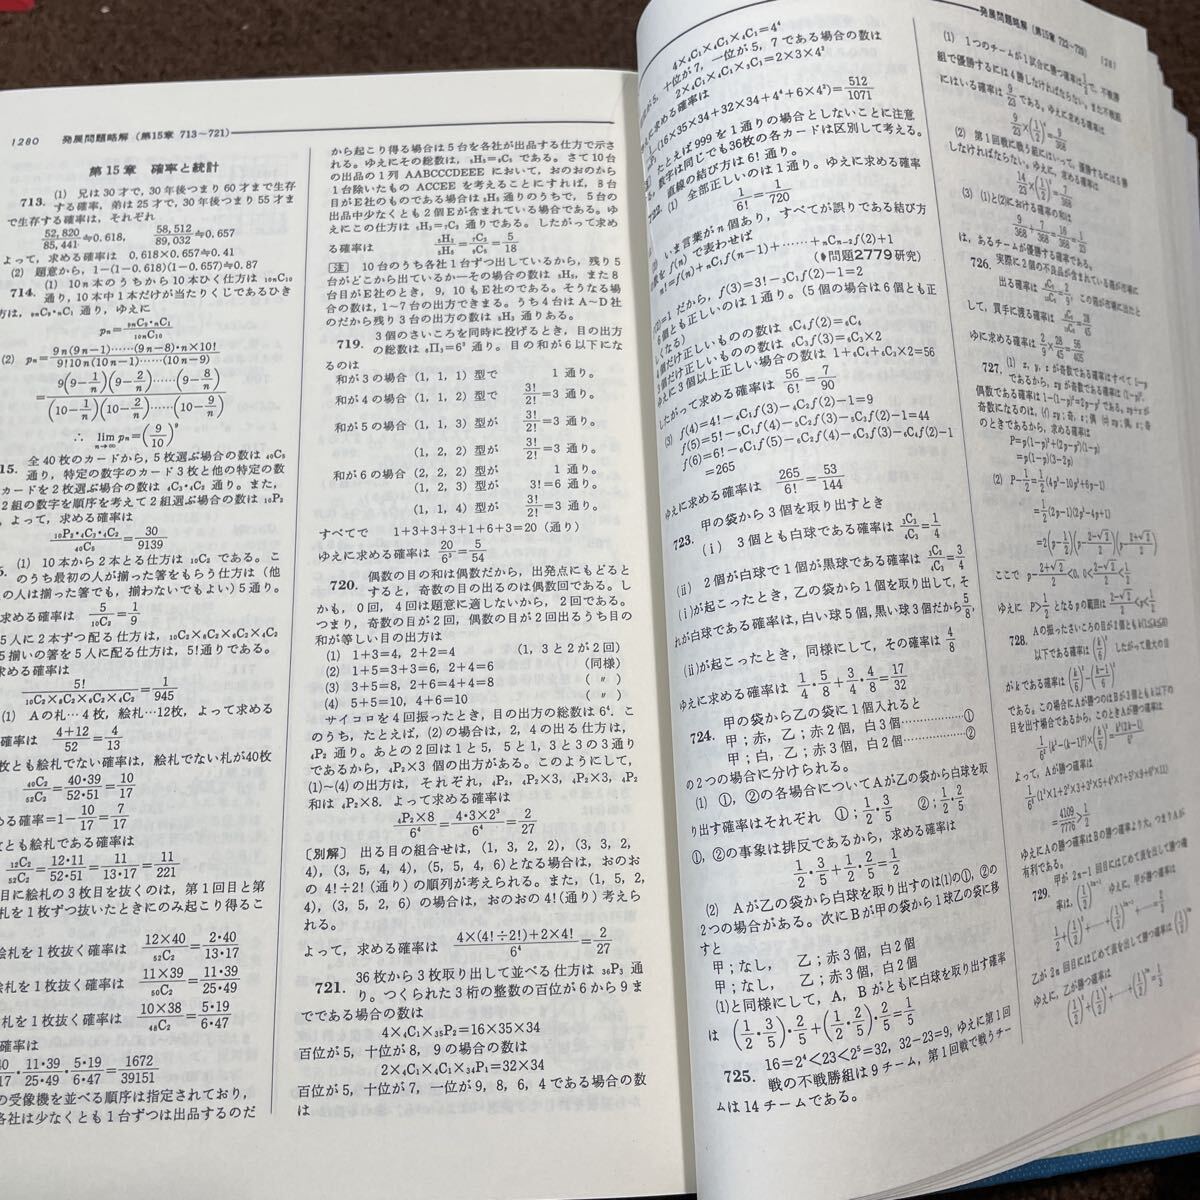 1280 発展問題略解 (第15章 713〜721)
第15章 確率と統計
713. (1) 兄は30才で, 30年後つまり60才まで生存
する確率, 弟は25才で, 30年後つまり55才ま
で生存する確率は, それぞれ
52,820/85,441≒0.618, 58,512/89,032≒0.657
よって, 求める確率は 0.618×0.657≒0.41
(2) 題意から, 1−(1−0.618)(1−0.657)≒0.87
714. (1) 10n本のうちから10本ひく仕方は ₁₀ₙC₁₀
通り, 10本中1本だけが当たりくじであるひき
方は, ₉ₙC₉・ₙC₁ 通り, ゆえに
pₙ=₉ₙC₉・ₙC₁/₁₀ₙC₁₀
(2) pₙ=9n(9n−1)……(9n−8)・n×10!/9!10n(10n−1)……(10n−9)
9(9−1/n)(9−2/n)……(9−8/n)
(10−1/n)(10−2/n)……(10−9/n)
∴ lim n→∞ pₙ=(9/10)⁹
15. 全40枚のカードから, 5枚選ぶ場合の数は ₄₀C₅
通り, 特定の数字のカード3枚と他の特定の数
カードを2枚選ぶ場合の数は ₄C₃・₄C₂ 通り. また,
2組の数字を順序を考えて2組選ぶ場合の数は ₁₀P₂
, よって, 求める確率は
₁₀P₂・₄C₃・₄C₂/₄₀C₅=30/9139
(1) 10本から2本とる仕方は ₁₀C₂ である. こ
のうち最初の人が揃った箸をもらう仕方は (他
の人は揃った箸でも, 揃わないでもよい) 5通り.
求める確率は 5/₁₀C₂=1/9
5人に2本ずつ配る仕方は, ₁₀C₂×₈C₂×₆C₂×₄C₂
5揃いの箸を5人に配る仕方は, 5!通りである.
求める確率は
5!/₁₀C₂×₈C₂×₆C₂×₄C₂=1/945
(1) Aの札…4枚, 絵札…12枚, よって求める
4+12/52=4/13
枚とも絵札でない確率は, 絵札でない札が40枚
₄₀C₂/₅₂C₂=40・39/52・51=10/17
める確率=1−10/17=7/17
とも絵札である確率は
₁₂C₂/₅₂C₂=12・11/52・51=11/13・17=11/221
目に絵札の3枚目を抜くのは, 第1回目と第
札を1枚ずつ抜いたときにのみ起こり得るこ
絵札を1枚抜く確率は 12×40/₅₂C₂=2・40/13・17
絵札を1枚抜く確率は 11×39/₅₀C₂=11・39/25・49
札を1枚抜く確率は 10×38/₄₈C₂=5・19/6・47
確率は
40/17・11・39/25・49・5・19/6・47=1672/39151
の受像機を並べる順序は指定されており,
各社は少なくとも1台ずつは出品するのだ
から起こり得る場合は5台を各社が出品する仕方で示さ
れる. ゆえにその総数は, ₅H₅=₉C₅ である. さて10台
の出品の1列 AABCCCDEEE において, おのおのから
1台除いたもの ACCEE を考えることにすれば, 8台
目がE社のものである場合は ₅H₃ 通りのうちで, 5台の
出品中少なくとも2個Eが含まれている場合である. ゆ
えにこの仕方は ₅H₃=₇C₃ 通りである. したがって求め
る確率は ₅H₃/₅H₅=₇C₃/₉C₅=5/18
[注] 10台のうち各社1台ずつ出しているから, 残り5
台がどこから出ているか―その場合の数は ₅H₅, また8
台目がE社のとき, 9, 10もE社のである. そうなる場
合の数は, 1〜7台の出方できまる. うち4台はA〜D社
のだから残り3台の出方の数は ₅H₃ 通りある.
719. 3個のさいころを同時に投げるとき, 目の出方
の総数は ₆Π₃=6³ 通り. 目の和が6以下にな
るのは
和が3の場合 (1, 1, 1) 型で 1通り.
和が4の場合 (1, 1, 2) 型で 3!/2!=3 通り.
和が5の場合 (1, 1, 3) 型が 3!/2!=3 通り.
(1, 2, 2) 型が 3!/2!=3 通り.
和が6の場合 (2, 2, 2) 型が 1通り.
(1, 2, 3) 型が 3!=6 通り.
(1, 1, 4) 型が 3!/2!=3 通り.
すべてで 1+3+3+3+1+6+3=20 (通り)
ゆえに求める確率は 20/6³=5/54
720. 偶数の目の和は偶数だから, 出発点にもどると
すると, 奇数の目の出るのは偶数回である. し
かも, 0回, 4回は題意に適しないから, 2回である.
つまり, 奇数の目が2回, 偶数の目が2回出るうち目の
和が等しい目の出方は
(1) 1+3=4, 2+2=4 (1, 3と2が2回)
(2) 1+5=3+3=6, 2+4=6 (同様)
(3) 3+5=8, 2+6=4+4=8 (〃)
(4) 5+5=10, 4+6=10 (〃)
サイコロを4回振ったとき, 目の出方の総数は6⁴. こ
のうち, たとえば, (2)の場合は, 2, 4の出る仕方は,
₄P₂ 通り. あとの2回は1と5, 5と1, 3と3の3通り
であるから, ₄P₂×3 個の出方がある. このようにして,
(1)〜(4)の出方は, それぞれ, ₄P₂, ₄P₂×3, ₄P₂×3, ₄P₂
和は ₄P₂×8. よって求める確率は
₄P₂×8/6⁴=4・3×2³/6⁴=2/27
[別解] 出る目の組合せは, (1, 3, 2, 2), (3, 3, 2,
4), (3, 5, 4, 4), (5, 5, 4, 6)となる場合は, おのお
の 4!÷2! (通り) の順列が考えられる. また, (1, 5, 2,
4), (3, 5, 2, 6) の場合は, おのおの4!(通り) 考えら
れる.
よって, 求める確率は 4×(4!÷2!)+2×4!/6⁴=2/27
721. 36枚から3枚取り出して並べる仕方は ₃₆P₃ 通
り. つくられた3桁の整数の百位が6から9ま
でである場合の数は
4×₄C₁×₃₅P₂=16×35×34
百位が5, 十位が8, 9の場合の数は
2×₄C₁×₄C₁×₃₄P₁=32×34
百位が5, 十位が7, 一位が9, 8, 6, 4である場合の数
は
発展問題略解 (第15章 722〜729)
4×₄C₁×₄C₁×₄C₁=4⁴
が5, 十位が7, 一位が5, 7である場合の数は
2×₄C₁×₄C₁×₃C₁=2×3×4²
に求める確率は
(16×35×34+32×34+4⁴+6×4²)=512/1071
たとえば999を1通りの場合としないことに注意
数字は同じでも36枚の各カードは区別して考える.
722. 直線の結び方は6!通り.
(1) 全部正しいのは1通り. ゆえに求める確率
1/6!=1/720
いま言葉がn個あり, すべてが誤りである結び方
を f(n) で表わせば
n!=f(n)+ₙC₁f(n−1)+……+ₙCₙ₋₂f(2)+1
(▶問題2779研究)
f(2)=1 だから, f(3)=3!−₃C₁f(2)−1=2
6個とも正しいのは1通り. (5個の場合は6個とも正
しくなる)
4個だけ正しいものの数は ₆C₄f(2)=₆C₄
3個だけ正しいものの数は ₆C₃f(3)=₆C₃×2
ゆえに3個以上正しい場合の数は 1+₆C₄+₆C₃×2=56
したがって求める確率は 56/6!=7/90
(3) f(4)=4!−₄C₁f(3)−₄C₂f(2)−1=9
f(5)=5!−₅C₁f(4)−₅C₂f(3)−₅C₃f(2)−1=44
f(6)=6!−₆C₁f(5)−₆C₂f(4)−₆C₃f(3)−₆C₄f(2)−1
=265
ゆえに求める確率は 265/6!=53/144
723. 甲の袋から3個を取り出すとき
(i) 3個とも白球である確率は ₃C₃/₄C₃=1/4
(ii) 2個が白球で1個が黒球である確率は ₃C₂/₄C₃=3/4
(i)が起こったとき, 乙の袋から1個を取り出して, そ
れが白球である確率は, 白い球5個, 黒い球3個だから5/8,
(ii)が起こったとき, 同様にして, その確率は 4/8
ゆえに求める確率は 1/4・5/8+3/4・4/8=17/32
724. 甲の袋から乙の袋に1個入れると
甲; 赤, 乙; 赤2個, 白3個……………①
甲; 白, 乙; 赤3個, 白2個……………②
の2つの場合に分けられる.
(1) ①, ②の各場合についてAが乙の袋から白球を取
り出す確率はそれぞれ ①; 1/2・3/5 ②; 1/2・2/5
①, ②の事象は排反であるから, 求める確率は
1/2・3/5+1/2・2/5=1/2
(2) Aが乙の袋から白球を取り出すのは(1)の①, ②の
2つの場合がある. 次にBが甲の袋から1球乙の袋に移
すと
甲; なし, 乙; 赤3個, 白2個
甲; なし, 乙; 赤3個, 白2個
(1)と同様にして, A, Bがともに白球を取り出す確率
は (1/2・3/5)・2/5+(1/2・2/5)・2/5=1/5
725. 16=2⁴<23<2⁵=32, 32−23=9, ゆえに第1回
戦の不戦勝組は9チーム, 第1回戦で戦うチー
ムは14チームである.
(1) 1つのチームが1試合に勝つ確率は1/2で, 不戦勝
組で優勝するには4勝しなければならない. また不戦組
にはいる確率は9/23である. ゆえに求める確率は
9/23×(1/2)⁴=9/368
(2) 第1回戦に戦う組にはいって, 優勝するには5勝
しなければならない. ゆえに, 求める確率は
14/23×(1/2)⁵=7/368
(3) (1)と(2)における確率の和は
9/368+7/368=16/368=1/23
は, あるチームが優勝する確率である.
726. 実際に2個の不良品が含まれている箱が市場に
出る確率は ₈C₂/₁₀C₂ この箱が市場に出たと
して, 買手に渡る確率は 28/45
ゆえに求める確率は 2/9×28/45=56/405
727. (1) x, y, z が奇数である確率はすべて 1−p
であるから, xy が奇数である確率は (1−p)²,
偶数である確率は 1−(1−p)²=2p−p². xy+z が
奇数になるのは, (イ) xy; 奇, z; 偶 (ロ) xy; 偶, z; 奇
のときであるから, 求める確率は
P=p(1−p)²+(2p−p²)(1−p)
=p(1−p)(3−2p)
(2) P−1/2=1/2(4p³−10p²+6p−1)
=1/2(2p−1)(2p²−4p+1)
=2(p−1/2)(p−2−√2/2)(p−2+√2/2)
ここで p−2+√2/2<0, 0<2−√2/2<1/2
ゆえに P>1/2 となる p の範囲は 2−√2/2<p<1/2
728. Aの振ったさいころの目が2個ともk(1≦k≦6)
以下である確率は (k/6)² したがって最大の目
がkである確率は (k/6)²−(k−1/6)²
ある. この場合にAが勝つのはBが2個ともk以下の
目を出す場合であるから, このときAが勝つ確率は
1/6²{k²−(k−1)²}×(k/6)²=k²(2k−1)/6⁴
よって, Aが勝つ確率は
1/6⁴(1²×1+2²×3+3²×5+4²×7+5²×9+6²×11)
4109/7776>1/2
ゆえにAの勝つ確率はBの勝つ確率より大, つまりAが
有利である.
729. 甲が 2n−1 回目にはじめて表を出して勝つ確
率は, (1/2)²ⁿ⁻¹ ゆえに, 甲が勝つ確率は
1/2+(1/2)³+……+(1/2)²ⁿ⁻¹+……=2/3
乙が 2n 回目にはじめて表を出して勝つ確率は (1/2)²ⁿ
ゆえに, 乙が勝つ確率は
(1/2)²+(1/2)⁴+……+(1/2)²ⁿ+……=1/3